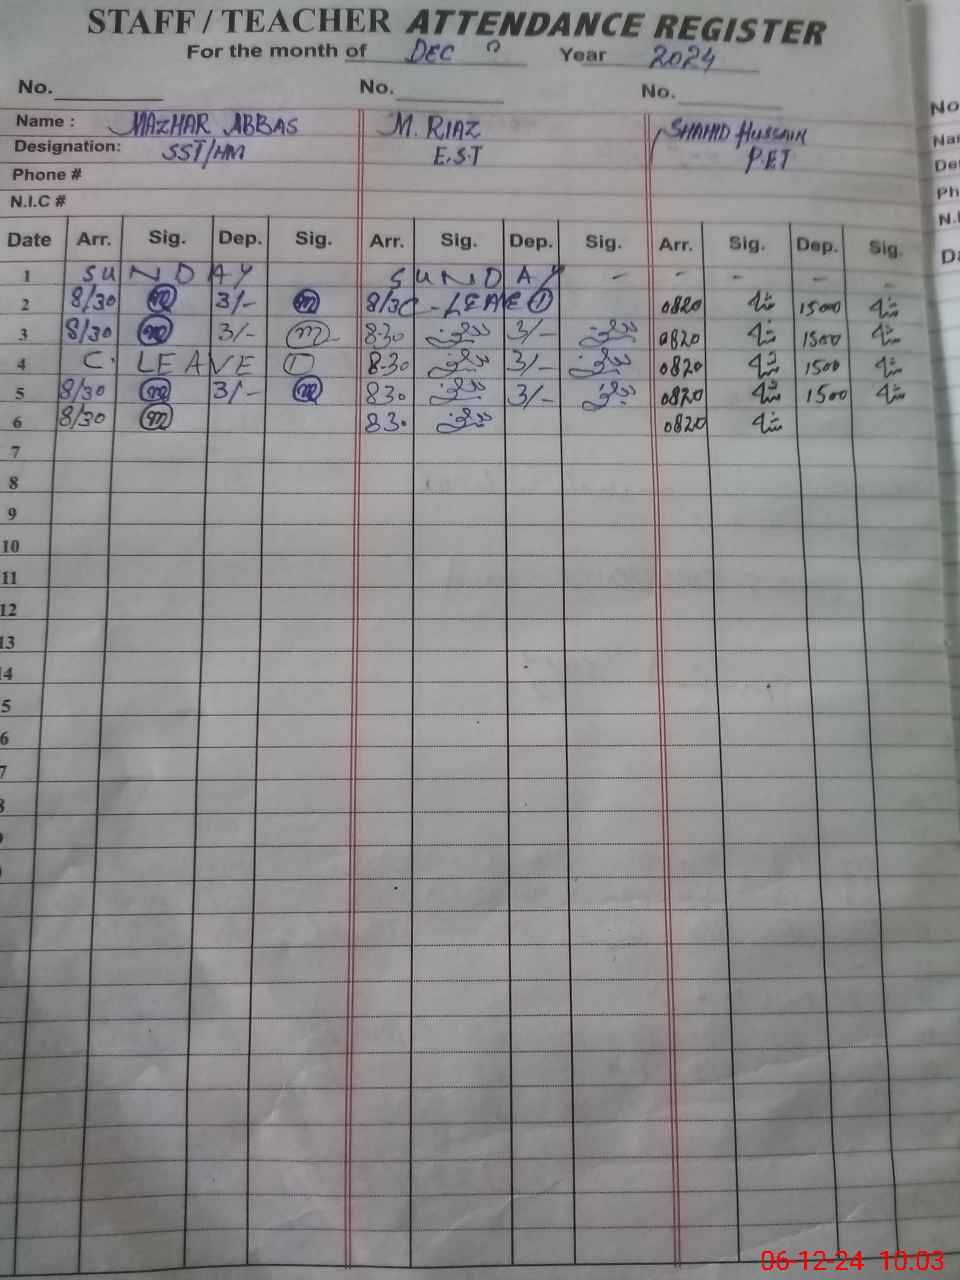 STAFF / TEACHER ATTENDANCE REGISTER
For the month of DEC Year 2024
No. No. No.
Name : MAZHAR ABBAS M. RIAZ SHAHID HUSSAIN
Designation: SST/HM E.S.T P.E.T
Phone #
N.I.C #
Date Arr. Sig. Dep. Sig. Arr. Sig. Dep. Sig. Arr. Sig. Dep. Sig.
1 SUNDAY SUNDAY - - - - -
2 8/30 m 3/- m 8/30 C-LEAVE 1 0820 1500
3 8/30 m 3/- m 8.30 3/- 0820 1500
4 C. LEAVE 1 8.30 3/- 0820 1500
5 8/30 m 3/- m 8.30 3/- 0820 1500
6 8/30 m 8.30 0820
7
8
9
10
11
12
13
14
5
6
7
8
No
Nar
De
Ph
N.I
Da
06-12-24 10.03